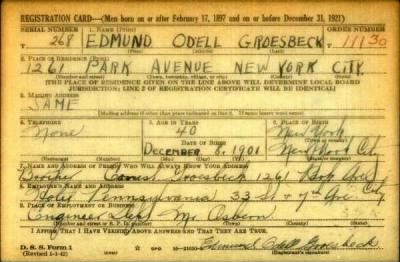 REGISTRATION CARD—(Men born on or after February 17, 1897 and on or before December 31, 1921)
SERIAL NUMBER 1. NAME (Print) ORDER NUMBER
268 EDMUND ODELL GROESBECK 11130
2. PLACE OF RESIDENCE (Print)
1261 PARK AVENUE NEW YORK CITY
(Number and street) (Town, township, village, or city) (County) (State)
[THE PLACE OF RESIDENCE GIVEN ON THE LINE ABOVE WILL DETERMINE LOCAL BOARD
JURISDICTION; LINE 2 OF REGISTRATION CERTIFICATE WILL BE IDENTICAL]
3. MAILING ADDRESS
SAME
[Mailing address if other than place indicated on line 2. If same insert word same]
4. TELEPHONE 5. AGE IN YEARS 6. PLACE OF BIRTH
None 40 New York
DATE OF BIRTH
DECEMBER 8, 1901 New York City
7. NAME AND ADDRESS OF PERSON WHO WILL ALWAYS KNOW YOUR ADDRESS
Brother Groesbeck 1261 Park Ave
8. EMPLOYER'S NAME AND ADDRESS
Hotel Pennsylvania 33 St + 7th Ave City
9. PLACE OF EMPLOYMENT OR BUSINESS
Engineer Dept Mr. Osborn
(Number and street or R. F. D. number) (Town) (County) (State)
I AFFIRM THAT I HAVE VERIFIED ABOVE ANSWERS AND THAT THEY ARE TRUE.
D. S. S. Form 1
(Revised 1-1-42) Edmund Odell Groesbeck
(Registrant's signature)